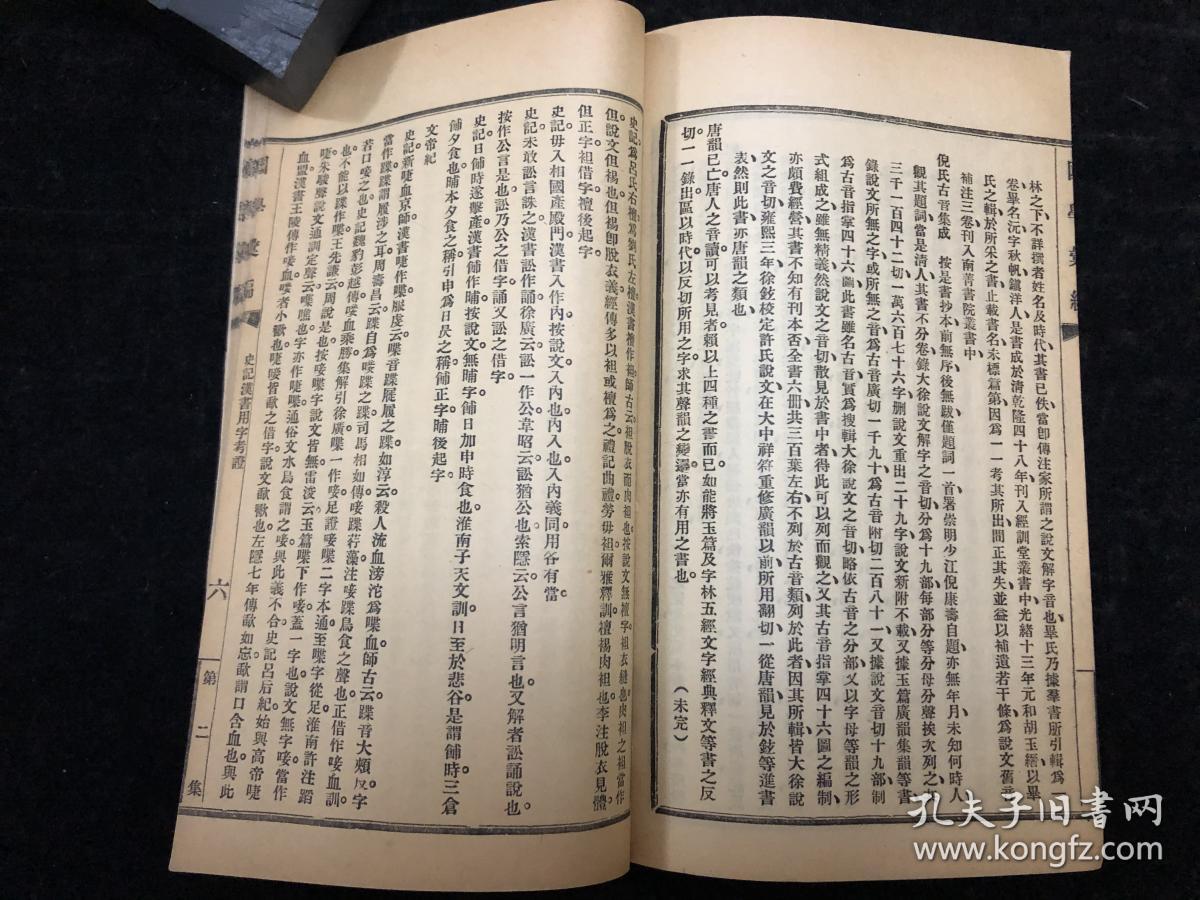 林之下不詳撰者姓名及時代其書已佚當卽傳注家所謂之說文解字音也畢氏乃據羣書所引輯爲一
卷畢名沅字秋帆鎭洋人是書成於清乾隆四十八年刊入經訓堂叢書中光緒十三年元和胡玉縉以畢
氏之輯於所采之書止載書名未標篇第因爲一一考其所出間正其失並益以補遺若干條爲說文舊音
補注三卷刊入南菁書院叢書中
倪氏古音集成　按是書抄本前無序後無跋僅題詞一首署崇明少江倪康壽自題亦無年月未知何時人
觀其題詞當是清人其書不分卷錄大徐說文解字之音切分爲十九部每部分等分母分聲挨次列之
三千一百四十二切一萬六百七十六字删說文重出二十九字說文新附不載又據玉篇廣韻集韻等書
錄說文所無之字或所無之音爲古音廣切一千九十爲古音附切二百八十一又據說文音切十九部制
爲古音指掌四十六圖此書雖名古音實爲搜輯大徐說文之音切略依古音之分部又以字母等韻之形
式組成之雖無精義然說文之音切散見於書中者得此可以列而觀之又其古音指掌四十六圖之編制
亦頗費經營其書不知有刊本否全書六冊共三百葉左右不列於古音類列於此者因其所輯皆大徐說
文之音切雍熙三年徐鉉校定許氏說文在大中祥符重修廣韻以前所用翻切一從唐韻見於鉉等進書
表然則此書亦唐韻之類也
唐韻已亡唐人之音讀可以考見者賴以上四種之書而已如能將玉篇及字林五經文字經典釋文等書之反
切一一錄出區以時代以反切所用之字求其聲韻之變遷當亦有用之書也　（未完）
史記爲呂氏右襢爲劉氏左襢漢書襢作袒師古云袒脫衣而肉袒也按說文無襢字袒衣縫也肉袒之袒當作
但說文但裼也但裼卽脫衣義經傳多以袒或襢爲之禮記曲禮勞毋袒爾雅釋訓襢裼肉袒也李注脫衣見體
但正字袒借字襢後起字
史記毋入相國產殿門漢書入作內按說文入內也內入也入內義同用各有當
史記未敢訟言誅之漢書訟作誦徐廣云訟一作公韋昭云訟猶公也索隱云公言猶明言也又解者訟誦說也
按作公言是也訟乃公之借字誦又訟之借字
史記日餔時遂擊產漢書餔作晡按說文無晡字餔日加申時食也淮南子天文訓日至於悲谷是謂餔時三倉
餔夕食也晡本夕食之稱引申爲日昃之稱餔正字晡後起字
文帝紀
史記新啑血京師漢書啑作喋服虔云喋音蹀屣履之蹀如淳云殺人流血滂沱爲喋血師古云蹀音大頰反字
當作蹀蹀謂履涉之耳周壽昌云蹀自爲唼蹀之蹀司馬相如傳唼蹀菁藻注唼蹀鳥食之聲也正借作唼血訓
若口唼之也史記魏豹彭越傳喋血乘勝集解引徐廣喋一作唼足證唼喋二字本通至喋字從足淮南許注蹈
也不能以蹀作喋王先謙云周說是也按唼喋字說文皆無雷浚云玉篇喋下作唼蓋一字也說文無字唼當作
啑朱駿聲說文通訓定聲云喋噍也字亦作啑喋通俗文水鳥食謂之唼與此義不合史記呂后紀始與高帝啑
血盟漢書王陵傳作唼血唼者小歠也啑唼皆歃之借字說文歃歠也左隱七年傳歃如忘歃謂口含血也與此
史記漢書用字考證
六
第二集
孔夫子旧书网
www.kongfz.com